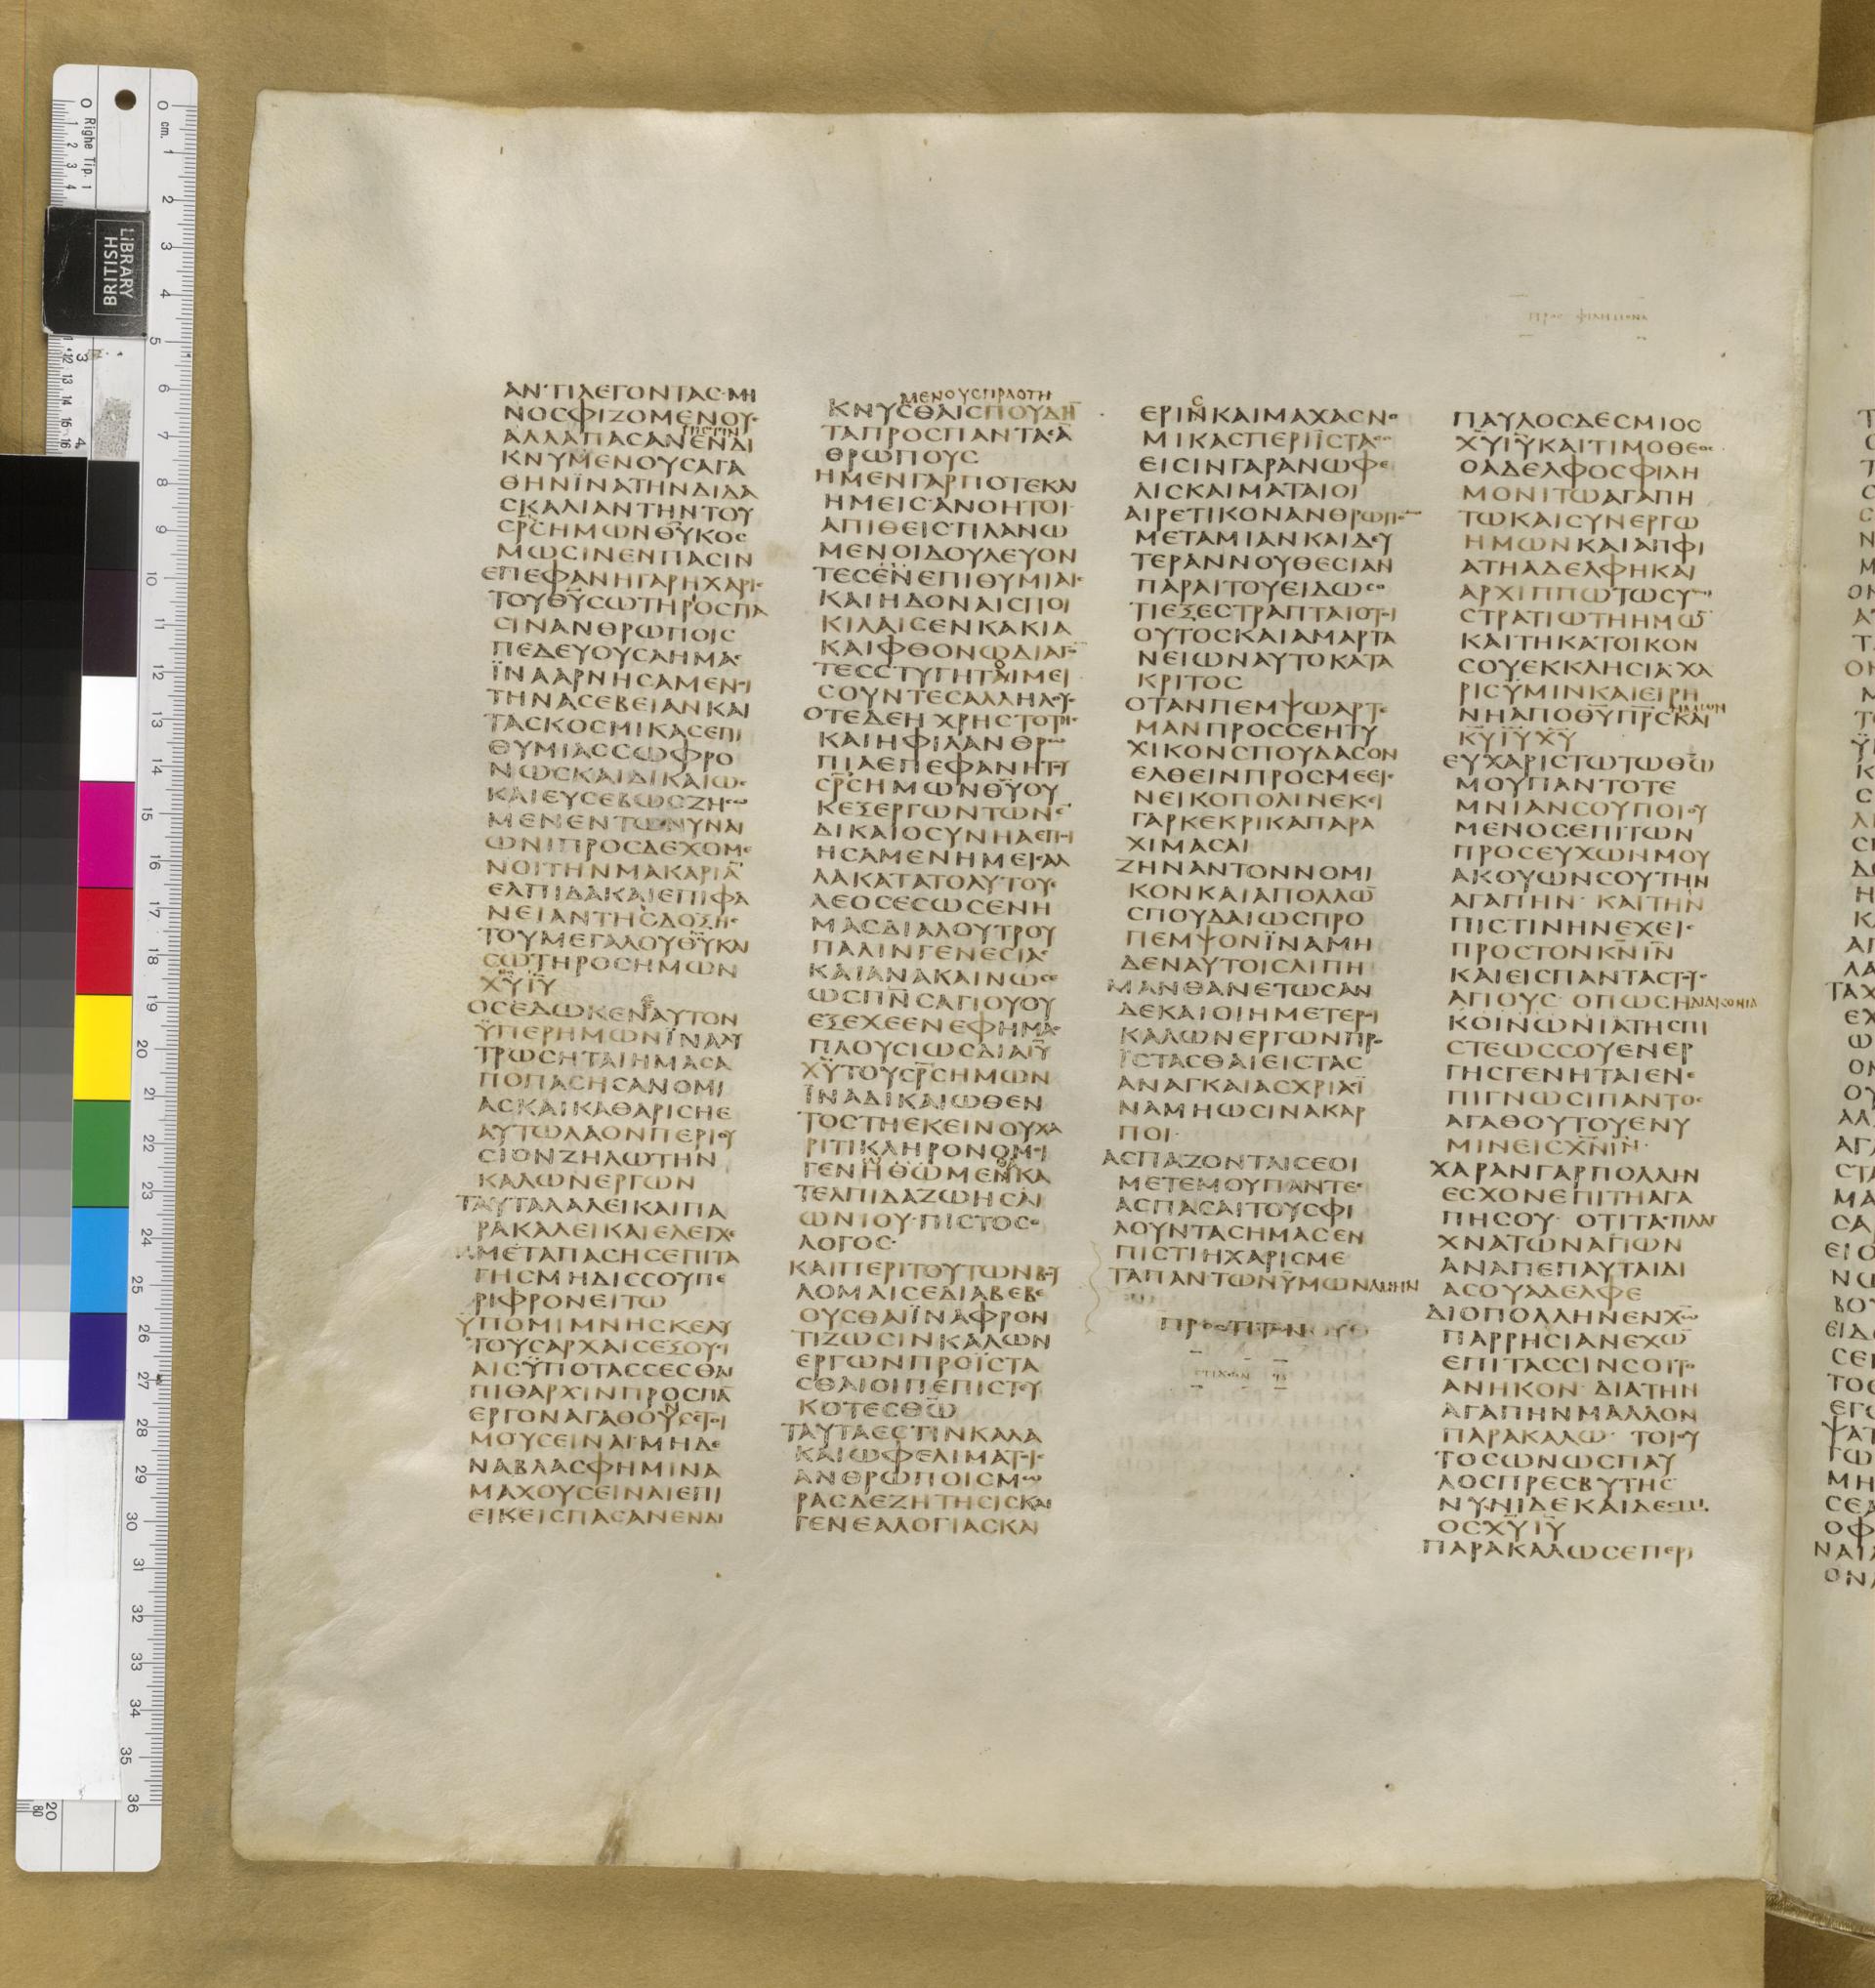 ΑΝΤΙΛΕΓΟΝΤΑΣ ΜΗ
ΝΟСΦΙΖΟΜΕΝΟΥС
ΑΛΛΑΠΑСΑΝΕΝΔΙ
ΚΝΥΜΕΝΟΥСΑΓΑ
ΘΗΝΪΝΑΤΗΝΔΙΔΑ
СΚΑΛΙΑΝΤΗΝΤΟΥ
СΡ̅СΗΜΩΝΘ̅Υ̅ΚΟС
ΜΩСΙΝΕΝΠΑСΙΝ
ΕΠΕΦΑΝΗΓΑΡΗΧΑΡΙС
ΤΟΥΘ̅Υ̅СΩΤΗΡΟСΠΑ
СΙΝΑΝΘΡΩΠΟΙС
ΠΕΔΕΥΟΥСΑΗΜΑС
ΪΝΑΑΡΝΗСΑΜΕΝΟΙ
ΤΗΝΑСΕΒΕΙΑΝΚΑΙ
ΤΑСΚΟСΜΙΚΑСΕΠΙ
ΘΥΜΙΑССΩΦΡΟ
ΝΩСΚΑΙΔΙΚΑΙΩС
ΚΑΙΕΥСΕΒΩСΖΗСΩ
ΜΕΝΕΝΤΩΝΥΝΑΙ
ΩΝΙΠΡΟСΔΕΧΟΜΕ
ΝΟΙΤΗΝΜΑΚΑΡΙΑ̅
ΕΛΠΙΔΑΚΑΙΕΠΙΦΑ
ΝΕΙΑΝΤΗСΔΟΞΗС
ΤΟΥΜΕΓΑΛΟΥΘ̅Υ̅ΚΑΙ
СΩΤΗΡΟСΗΜΩΝ
Χ̅Υ̅Ι̅Υ̅
ΟСΕΔΩΚΕΝΕΑΥΤΟΝ
ΫΠΕΡΗΜΩΝΪΝΑΛΥ
ΤΡΩСΗΤΑΙΗΜΑСΑ
ΠΟΠΑСΗСΑΝΟΜΙ
ΑСΚΑΙΚΑΘΑΡΙСΗΕ
ΑΥΤΩΛΑΟΝΠΕΡΙΟΥ
СΙΟΝΖΗΛΩΤΗΝ
ΚΑΛΩΝΕΡΓΩΝ
ΤΑΥΤΑΛΑΛΕΙΚΑΙΠΑ
ΡΑΚΑΛΕΙΚΑΙΕΛΕΓΧΕ
ΜΕΤΑΠΑСΗСΕΠΙΤΑ
ΓΗСΜΗΔΙССΟΥΠΕ
ΡΙΦΡΟΝΕΙΤΩ
ΫΠΟΜΙΜΝΗСΚΕΑΥ
ΤΟΥСΑΡΧΑΙСΕΞΟΥСΙ
ΑΙСΫΠΟΤΑССΕСΘΑΙ
ΠΙΘΑΡΧΙΝΠΡΟСΠΑ̅
ΕΡΓΟΝΑΓΑΘΟΥСΕΤΟΙ
ΜΟΥСΕΙΝΑΙΜΗΔΕ
ΝΑΒΛΑСΦΗΜΙΝΑ
ΜΑΧΟΥСΕΙΝΑΙΕΠΙ
ΕΙΚΕΙСΠΑСΑΝΕΝΔΙ
ΜΕΝΟΥСΠΡΑΟΤΗ
ΚΝΥСΘΑΙСΠΟΥΔΗ̅
ΤΑΠΡΟСΠΑΝΤΑСΑ̅
ΘΡΩΠΟΥС
ΗΜΕΝΓΑΡΠΟΤΕΚΑΙ
ΗΜΕΙСΑΝΟΗΤΟΙ
ΑΠΙΘΕΙСΠΛΑΝΩ
ΜΕΝΟΙΔΟΥΛΕΥΟΝ
ΤΕСΕΝΕΠΙΘΥΜΙΑΙС
ΚΑΙΗΔΟΝΑΙСΠΟΙ
ΚΙΛΑΙСΕΝΚΑΚΙΑ
ΚΑΙΦΘΟΝΩΔΙΑΓΟ̅
ΤΕССΤΥΓΗΤΟΙΜΕΙ
СΟΥΝΤΕСΑΛΛΗΛΟΥС
ΟΤΕΔΕΗΧΡΗСΤΟΤΗС
ΚΑΙΗΦΙΛΑΝΘΡΩ
ΠΙΑΕΠΕΦΑΝΗΤΟΥ
СΡ̅СΗΜΩΝΘ̅Υ̅ΟΥ
ΚΕΞΕΡΓΩΝΤΩΝΕ̅
ΔΙΚΑΙΟСΥΝΗΑΕΠΟΙ
ΗСΑΜΕΝΗΜΕΙСΑΛ
ΛΑΚΑΤΑΤΟΑΥΤΟΥ
ΛΕΟСΕСΩСΕΝΗ
ΜΑСΔΙΑΛΟΥΤΡΟΥ
ΠΑΛΙΝΓΕΝΕСΙΑС
ΚΑΙΑΝΑΚΑΙΝΩСΕ
ΩСΠ̅Ν̅СΑΓΙΟΥΟΥ
ΕΞΕΧΕΕΝΕΦΗΜΑС
ΠΛΟΥСΙΩСΔΙΑΙ̅Υ̅
Χ̅Υ̅ΤΟΥСΡ̅СΗΜΩΝ
ΪΝΑΔΙΚΑΙΩΘΕΝ
ΤΟСΤΗΕΚΕΙΝΟΥΧΑ
ΡΙΤΙΚΛΗΡΟΝΟΜΟΙ
ΓΕΝΗΘΩΜΕΝΚΑ
ΤΕΛΠΙΔΑΖΩΗСΑΙ
ΩΝΙΟΥ ΠΙСΤΟСΟ
ΛΟΓΟС
ΚΑΙΠΕΡΙΤΟΥΤΩΝΒΟΥ
ΛΟΜΑΙСΕΔΙΑΒΕΒΕ
ΟΥСΘΑΙΪΝΑΦΡΟΝ
ΤΙΖΩСΙΝΚΑΛΩΝ
ΕΡΓΩΝΠΡΟΪСΤΑ
СΘΑΙΟΙΠΕΠΙСΤΟΥ
ΚΟΤΕСΘ̅Ω̅
ΤΑΥΤΑΕСΤΙΝΚΑΛΑ
ΚΑΙΩΦΕΛΙΜΑΤΟΙС
ΑΝΘΡΩΠΟΙСΜΩ
ΡΑСΔΕΖΗΤΗСΙСΚΑΙ
ΓΕΝΕΑΛΟΓΙΑСΚΑΙ
ΕΡΙΝΚΑΙΜΑΧΑСΝΟ
ΜΙΚΑСΠΕΡΙΪСΤΑСΟ
ΕΙСΙΝΓΑΡΑΝΩΦΕ
ΛΙСΚΑΙΜΑΤΑΙΟΙ
ΑΙΡΕΤΙΚΟΝΑΝΘΡΩΠΟ̅
ΜΕΤΑΜΙΑΝΚΑΙΔΕΥ
ΤΕΡΑΝΝΟΥΘΕСΙΑΝ
ΠΑΡΑΙΤΟΥΕΙΔΩСΟ
ΤΙΕΞΕСΤΡΑΠΤΑΙΟΤΟΙ
ΟΥΤΟСΚΑΙΑΜΑΡΤΑ
ΝΕΙΩΝΑΥΤΟΚΑΤΑ
ΚΡΙΤΟС
ΟΤΑΝΠΕΜΨΩΑΡΤΕ
ΜΑΝΠΡΟССΕΗΤΥ
ΧΙΚΟΝСΠΟΥΔΑСΟΝ
ΕΛΘΕΙΝΠΡΟСΜΕΕΙС
ΝΕΙΚΟΠΟΛΙΝΕΚΕΙ
ΓΑΡΚΕΚΡΙΚΑΠΑΡΑ
ΧΙΜΑСΑΙ
ΖΗΝΑΝΤΟΝΝΟΜΙ
ΚΟΝΚΑΙΑΠΟΛΛΩ̅
СΠΟΥΔΑΙΩСΠΡΟ
ΠΕΜΨΟΝΪΝΑΜΗ
ΔΕΝΑΥΤΟΙСΛΙΠΗ
ΜΑΝΘΑΝΕΤΩСΑΝ
ΔΕΚΑΙΟΙΗΜΕΤΕΡΟΙ
ΚΑΛΩΝΕΡΓΩΝΠΡΟ
ΪСΤΑСΘΑΙΕΙСΤΑС
ΑΝΑΓΚΑΙΑСΧΡΙΑСΪ
ΝΑΜΗΩСΙΝΑΚΑΡ
ΠΟΙ
ΑСΠΑΖΟΝΤΑΙСΕΟΙ
ΜΕΤΕΜΟΥΠΑΝΤΕС
ΑСΠΑСΑΙΤΟΥСΦΙ
ΛΟΥΝΤΑСΗΜΑСΕΝ
ΠΙСΤΙΗΧΑΡΙСΜΕ
ΤΑΠΑΝΤΩΝΫΜΩΝΑΜΗΝ
ΠΡΟСΤΙΤΟΝ
СΤΙΧΩΝ
ΠΡΟС ΦΙΛΗΜΟΝΑ
ΠΑΥΛΟСΔΕСΜΙΟС
Χ̅Υ̅Ι̅Υ̅ΚΑΙΤΙΜΟΘΕΟС
ΟΑΔΕΛΦΟСΦΙΛΗ
ΜΟΝΙΤΩΑΓΑΠΗ
ΤΩΚΑΙСΥΝΕΡΓΩ
ΗΜΩΝΚΑΙΑΠΦΙ
ΑΤΗΑΔΕΛΦΗΚΑΙ
ΑΡΧΙΠΠΩΤΩСΥ
СΤΡΑΤΙΩΤΗΗΜΩ̅
ΚΑΙΤΗΚΑΤΟΙΚΟΝ
СΟΥΕΚΚΛΗСΙΑΧΑ
ΡΙСΫΜΙΝΚΑΙΕΙΡΗ
ΝΗΑΠΟΘ̅Υ̅Π̅Ρ̅СΗΜΩΝΚΑΙ
Κ̅Υ̅Ι̅Υ̅Χ̅Υ̅
ΕΥΧΑΡΙСΤΩΤΩΘ̅Ω̅
ΜΟΥΠΑΝΤΟΤΕ
ΜΝΙΑΝСΟΥΠΟΙΟΥ
ΜΕΝΟСΕΠΙΤΩΝ
ΠΡΟСΕΥΧΩΝΜΟΥ
ΑΚΟΥΩΝСΟΥΤΗΝ
ΑΓΑΠΗΝ ΚΑΙΤΗΝ
ΠΙСΤΙΝΗΝΕΧΕΙС
ΠΡΟСΤΟΝΚ̅Ν̅Ι̅Ν̅
ΚΑΙΕΙСΠΑΝΤΑСΤΟΥС
ΑΓΙΟΥС ΟΠΩСΗΔΙΑΚΟΝΙΑ
ΚΟΙΝΩΝΙΑΤΗСΠΙ
СΤΕΩССΟΥΕΝΕΡ
ΓΗСΓΕΝΗΤΑΙΕΝΕ
ΠΙΓΝΩСΙΠΑΝΤΟС
ΑΓΑΘΟΥΤΟΥΕΝΥ
ΜΙΝΕΙСΧ̅Ν̅Ι̅Ν̅
ΧΑΡΑΝΓΑΡΠΟΛΛΗΝ
ΕСΧΟΝΕΠΙΤΗΑΓΑ
ΠΗСΟΥ ΟΤΙΤΑСΠΛΑ
ΧΝΑΤΩΝΑΓΙΩΝ
ΑΝΑΠΕΠΑΥΤΑΙΔΙ
ΑСΟΥΑΔΕΛΦΕ
ΔΙΟΠΟΛΛΗΝΕΝΧ̅Ω̅
ΠΑΡΡΗСΙΑΝΕΧΩ̅
ΕΠΙΤΑССΙΝСΟΙΤΟ
ΑΝΗΚΟΝ ΔΙΑΤΗΝ
ΑΓΑΠΗΝΜΑΛΛΟΝ
ΠΑΡΑΚΑΛΩ ΤΟΙΟΥ
ΤΟСΩΝΩСΠΑΥ
ΛΟСΠΡΕСΒΥΤΗС
ΝΥΝΙΔΕΚΑΙΔΕСΜΙ
ΟСΧ̅Υ̅Ι̅Υ̅
ΠΑΡΑΚΑΛΩСΕΠΕΡΙ